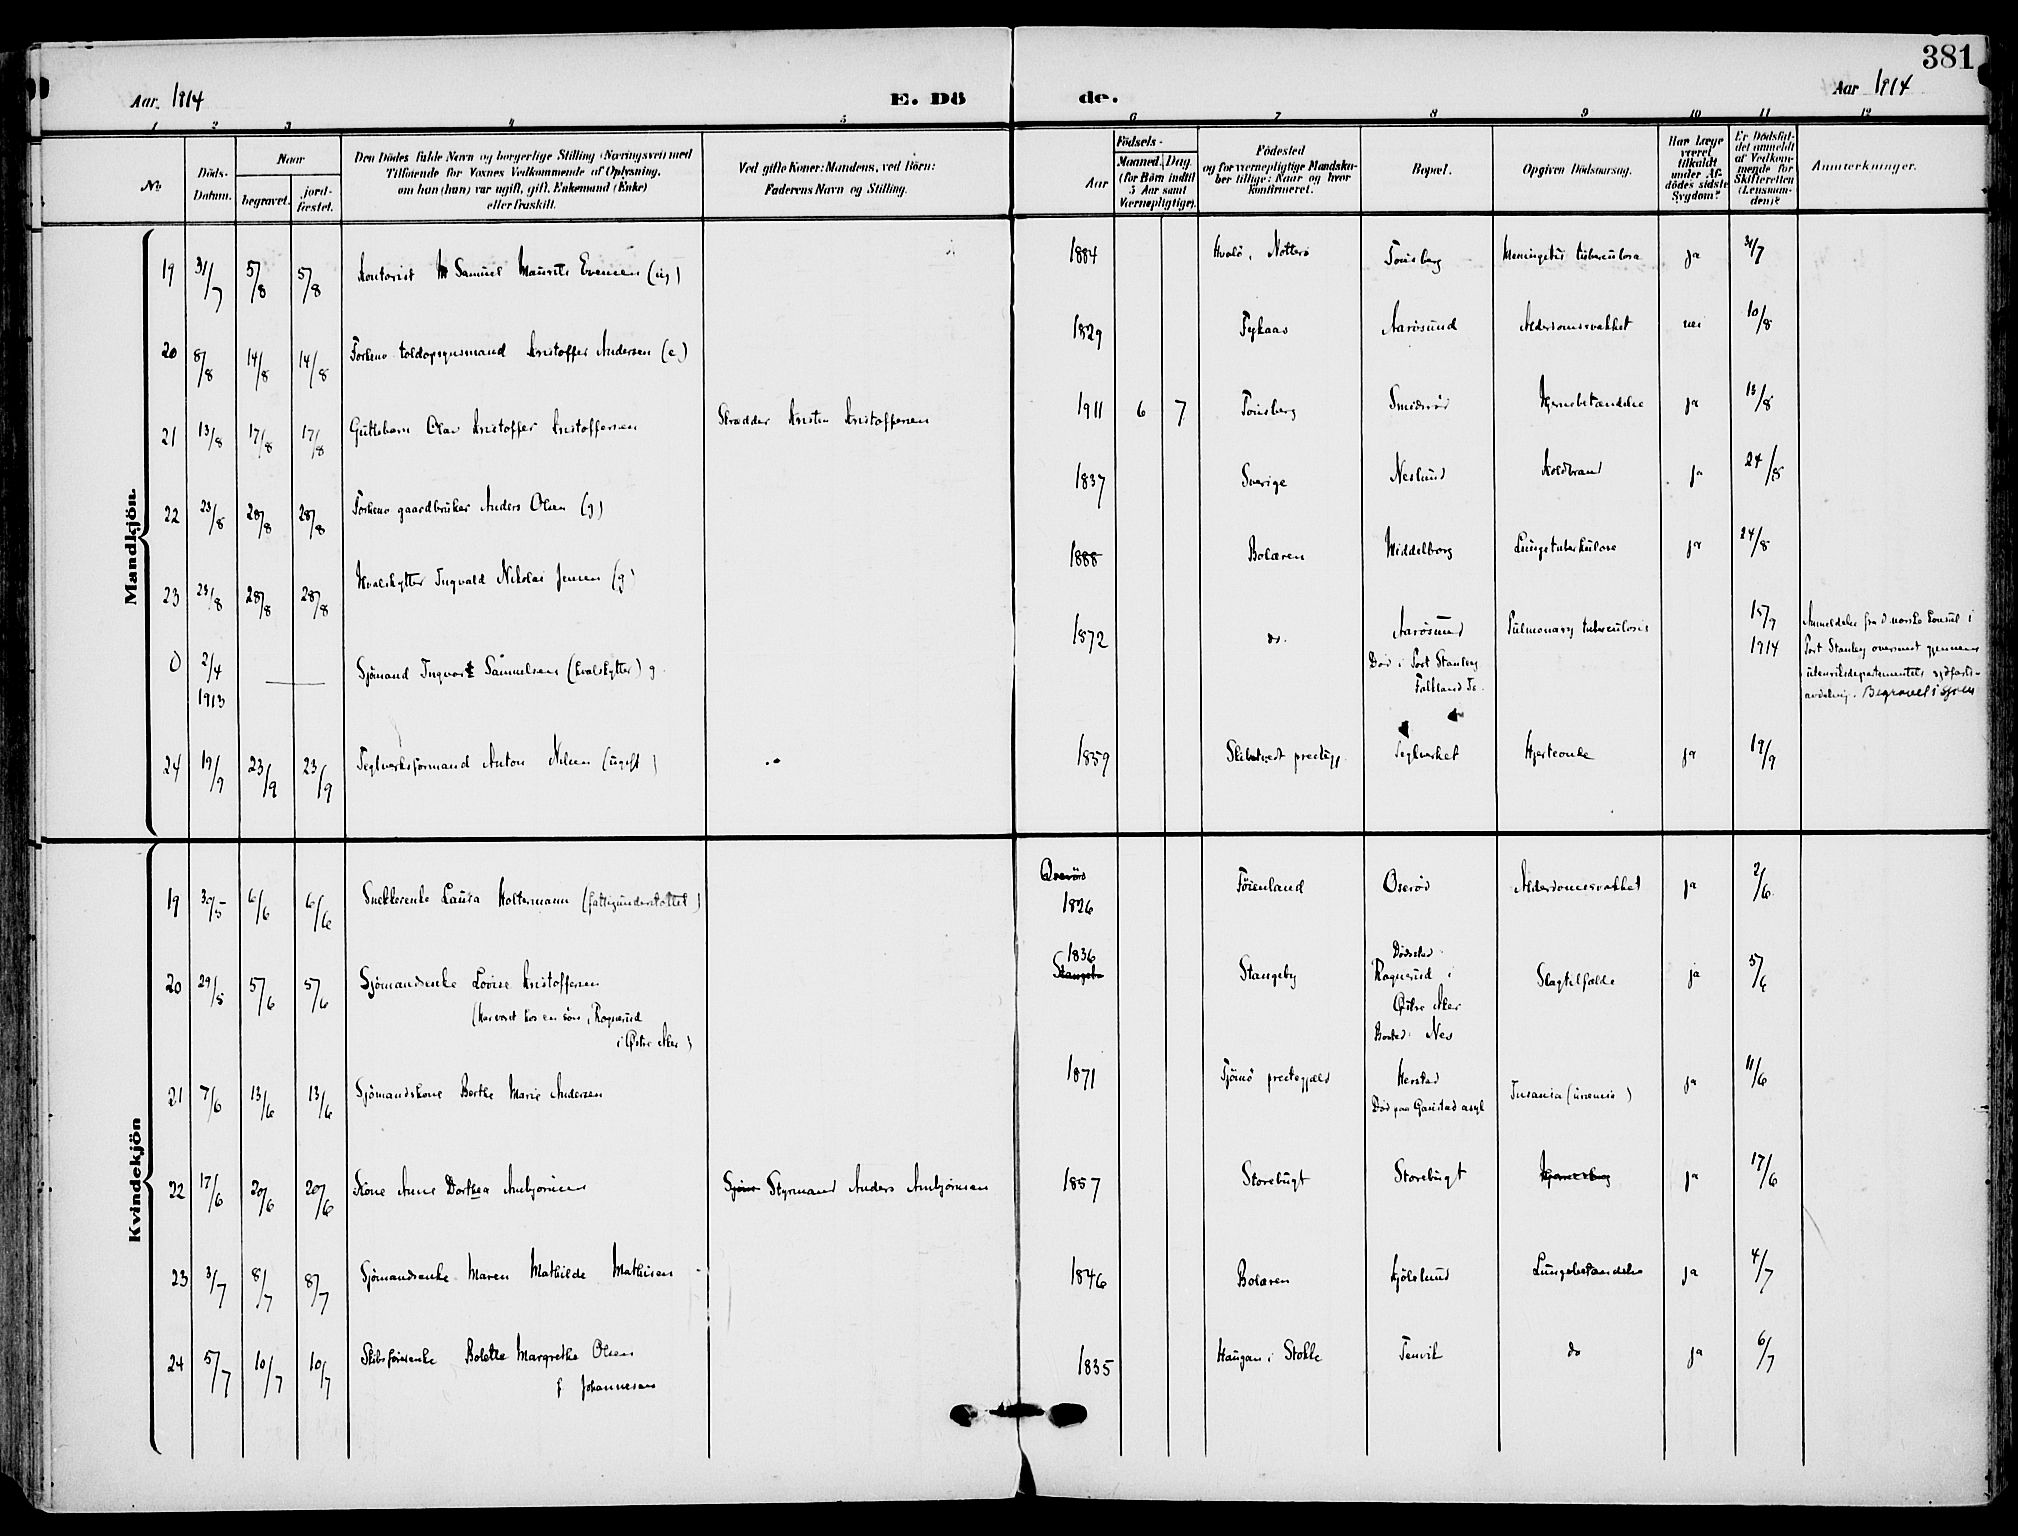 381
Aar 1914
E. Dö
de.
Aar 1914
1 2 3 4 5 6 7 8 9 10 11 12
No
Döds-Datum.
Naar
begravet.
jord-fæstet.
Den Dödes fulde Navn og borgerlige Stilling (Næringsvei) med
Tilföiende for Voxnes Vedkommende af Oplysning,
om han (hun) var ugift, gift, Enkemand (Enke)
eller fraskilt.
Ved gifte Koner: Mandens, ved Börn:
Faderens Navn og Stilling.
Födsels-
Aar
Maaned. Dag.
(for Börn indtil
5 Aar samt
Værnepligtige).
Födested
og for værnepligtige Mandskaber tillige: Naar og hvor
konfirmeret.
Bopæl.
Opgiven Dödsaarsag.
Har Læge
været
tilkaldt
under Afdödes sidste
Sygdom?
Er Dödsfaldet anmeldt
af Vedkommende for
Skifteretten
(Lensmanden)?
Anmærkninger.
Mandkjön.
19 31/7 5/8 5/8 Kontorist Samuel Maurits Evensen (ug) 1884 Hvalö, Nötterö Tönsberg Meningitis tuberculosa ja 31/7
20 8/8 14/8 14/8 Forhenv. toldopsynsmand Kristoffer Andersen (e) 1829 Aarösund Alderdomssvakhet nei 10/8
21 13/8 17/8 17/8 Guttebarn Olav Kristoffer Kristoffersen Skrædder Kristen Kristoffersen 1911 6 7 Tönsberg Smidsröd Hjernebetændelse ja 13/8
22 23/8 28/8 28/8 Forhenv gaardbruker Anders Olsen (g) 1837 Sverige Neslund Koldbrand ja 24/8
23 23/8 28/8 28/8 Hvalskytter Ingvald Nikolai Jensen (g) 1888 Bolæren Middelborg Lungetuberkulose ja 24/8
0 2/4 1913 — Sjömand Ingvart Samuelsen (hvalskytter) g. 1872 do. Aarösund Pulmonary tuberculosis 15/7 1914
Död i Port Stanley
Falkland Is.
Anmeldelse fra d norske konsul i
Port Stanley oversendt gjennem
utenriksdepartementets sjöfarts-
avdeling. Begravet i Sjöen
24 19/9 23/9 23/9 Teglverksformand Anton Nilsen (ugift) 1859 Skibtvedt prestegj. Teglverket Hjerteonde ja 19/9
Kvindekjön
19 30/5 6/6 6/6 Snekkerenke Laura Holtermann (fattigunderstöttet) Oseröd 1826 Föienland Oseröd Alderdomssvakhet ja 2/6
20 29/5 5/6 5/6 Sjömandsenke Lovise Kristoffersen 1836 Stangeby Stangeby Slagtilfælde ja 5/6
(har været hos en sön, Rognerud
i Östre Aker)
Dödssted:
Rognerud i
Östre Aker
Bosted: Nes
21 7/6 13/6 13/6 Sjömandskone Berthe Marie Andersen 1871 Tjömö prestegjæld Herstad Insania (uræmia) ja 11/6
Död paa Gaustad asyl
22 17/6 20/6 20/6 Kone Anne Dorthea Ambjörnsen Sjöm Styrmand Anders Ambjörnsen 1857 Storebugt Storebugt ja 17/6
23 3/7 8/7 8/7 Sjömandsenke Maren Mathilde Mathisen 1846 Bolæren Kjölslund Lungebetændelse ja 4/7
24 5/7 10/7 10/7 Skibsförerenke Bolette Margrethe Olsen 1835 Haugan i Stokke Tenvik do ja 6/7
f Johannesen